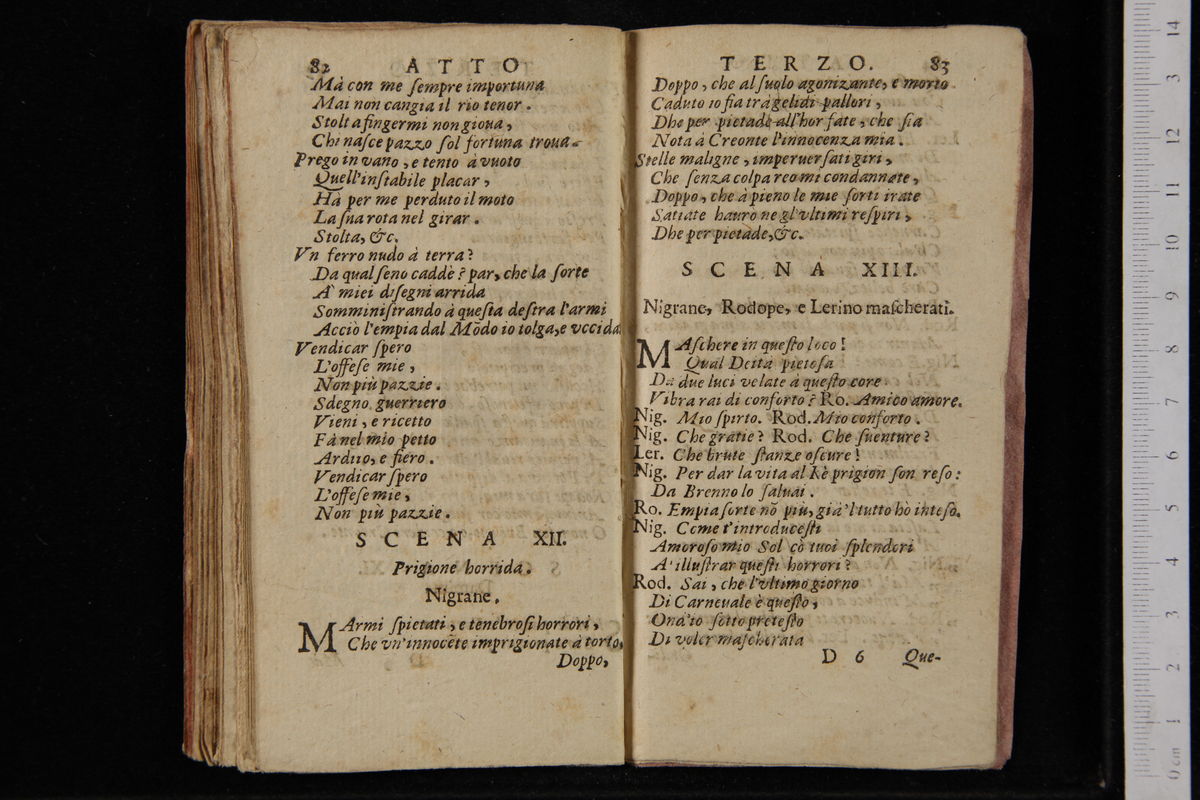 82 ATTO
Mà con me ſempre importuna
Mai non cangia il rio tenor.
Stolt a fingermi non gioua,
Chi naſce pazzo ſol fortuna troua.
Prego in vano, e tento à vuoto
Quell'inſtabile placar,
Hà per me perduto il moto
La ſua rota nel girar.
Stolta, &c.
Vn ferro nudo à terra?
Da qual ſeno caddè? par, che la ſorte
A' miei diſegni arrida
Somminiſtrando à queſta deſtra l'armi
Acciò l'empia dal Mōdo io tolga, e vccida
Vendicar ſpero
L'offeſe mie,
Non più pazzie.
Sdegno guerriero
Vieni, e ricetto
Fà nel mio petto
Arduo, e fiero.
Vendicar ſpero
L'offeſe mie,
Non più pazzie.
SCENA XII.
Prigione horrida.
Nigrane.
MArmi ſpietati, e tenebroſi horrori,
Che vn'innocēte imprigionate à torto,
Doppo,
TERZO. 83
Doppo, che al ſuolo agonizante, e morto
Caduto io ſia trà gelidi pallori,
Dhe per pietade all'hor fate, che ſia
Nota à Creonte l'innocenza mia.
Stelle maligne, imperuerſati giri,
Che ſenza colpa reo mi condannate,
Doppo, che à pieno le mie ſorti irate
Satiate hauro ne gl'vltimi reſpiri,
Dhe per pietade, &c.
SCENA XIII.
Nigrane, Rodope, e Lerino maſcherati.
MAſchere in queſto loco!
Qual Deità pietoſa
Da due luci velate à queſto core
Vibra rai di conforto? Ro. Amico amore.
Nig. Mio ſpirto. Rod. Mio conforto.
Nig. Che gratie? Rod. Che ſuenture?
Ler. Che brute ſtanze oſcure!
Nig. Per dar la vita al Rè prigion ſon reſo:
Da Brenno lo ſaluai.
Ro. Empia ſorte nō più, già'l tutto hò inteſo.
Nig. Come t'introduceſti
Amoroſo mio Sol cō tuoi ſplendori
A' illuſtrar queſti horrori?
Rod. Sai, che l'vltimo giorno
Di Carneuale è queſto,
Ond'io ſotto preteſto
Di voler maſcherata
D 6 Que-
14
13
12
11
10
9
8
7
6
5
4
3
2
1
0 cm